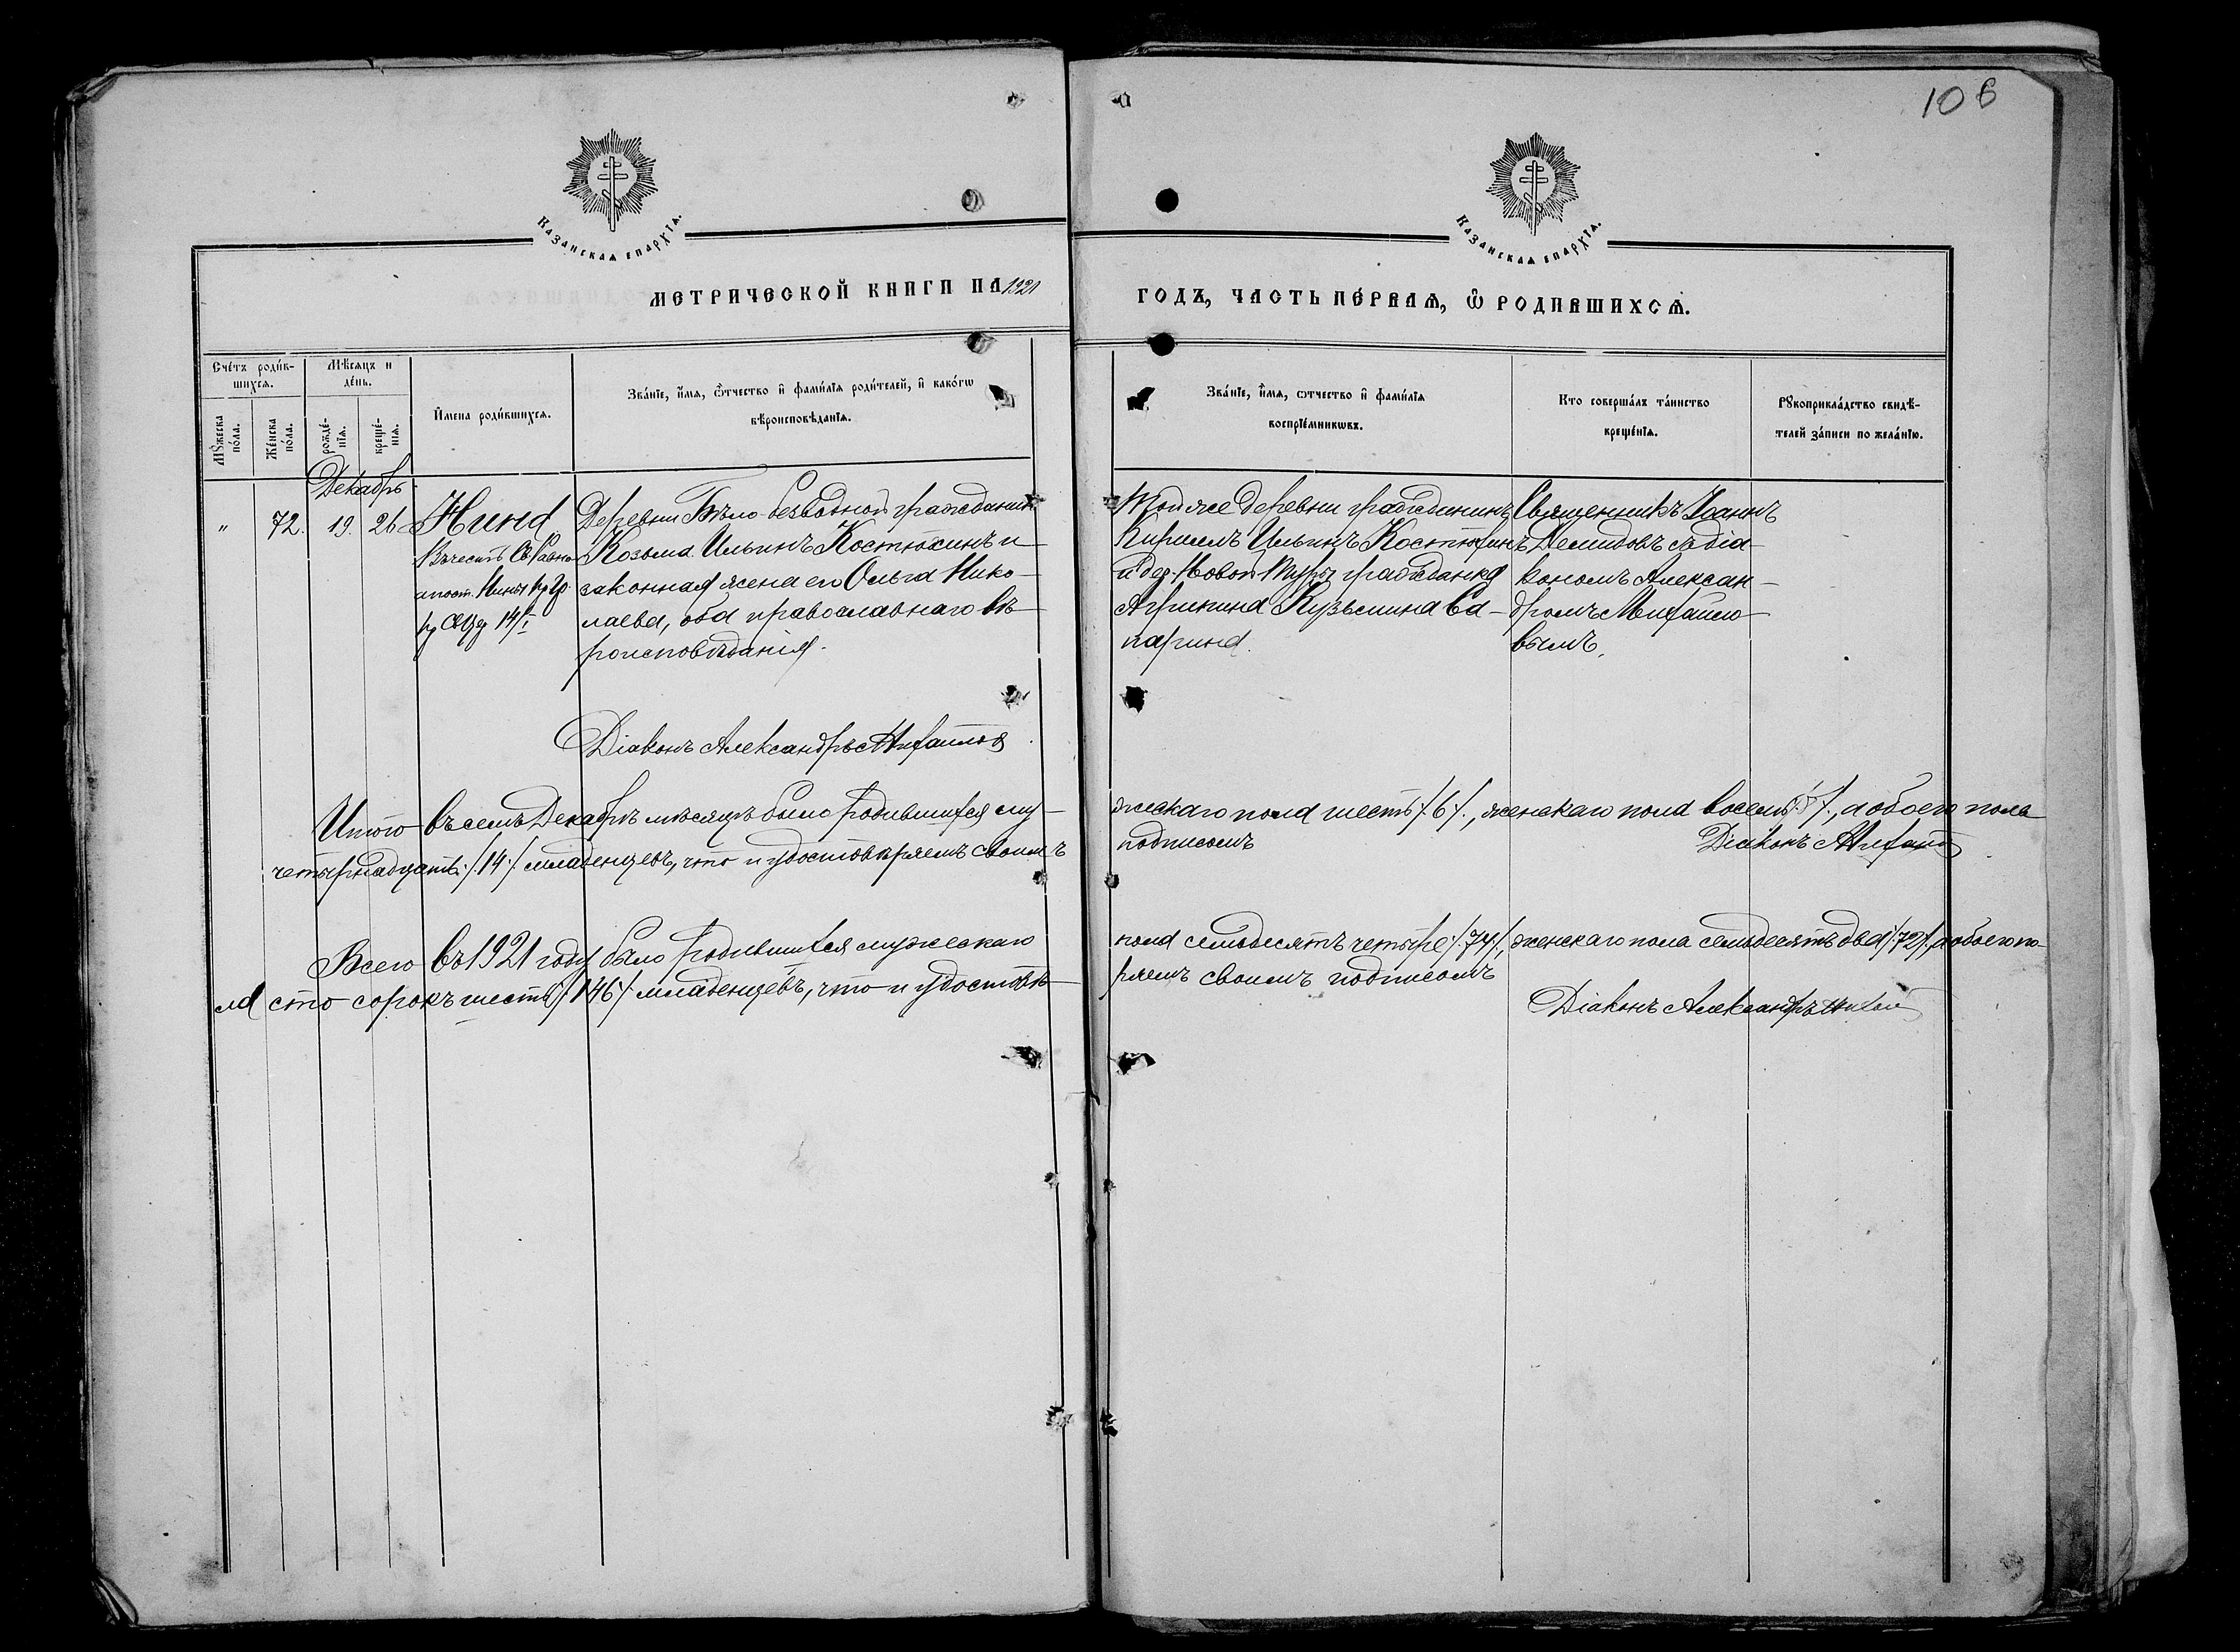 106
Казанская епархїѧ.
Казанская епархїѧ.
МЕТРИЧЕСКОЙ КНИГИ НА 1921
ГОДЪ, ЧАСТЬ ПЕ́РВАѦ, Ѡ РОДИВШИХСѦ.
Сче́тъ роди́в-
шихсѧ.
Мѣ́сѧцъ и
де́нь.
Мꙋ́жеска
по́ла.
Же́нска
по́ла.
рожде́-
нїѧ.
креще́-
нїѧ.
И҆́мена роди́вшихсѧ.
Зва́нїе, и҆́мѧ, ѻ҆́тчество и҆ фами́лїѧ роди́телей, и҆ како́гѡ
вѣроисповѣ́данїѧ.
Зва́нїе, и҆́мѧ, ѻтчество и҆ фами́лїѧ
воспрїе́мникѡвъ.
Кто соверша́лъ та́инство
креще́нїѧ.
Рꙋкоприкла́дство свидѣ́-
телей за́писи по жела́нїю.
Декабрь
" 72. 19. 26
Нина
Въ честь Св. Равно
апост. Нины
14/I
Деревни Бѣло-безводной гражданинъ
Козьма Ильинъ Костюхинъ и
законная жена его Ольга Нико-
лаева, оба православнаго вѣ-
роисповѣданія.
Той же деревни гражданинъ
Кириллъ Ильинъ Костюхинъ
и дер. Новой Туры гражданка
Агрипина Кузьмина Са-
парина.
Священникъ Іоаннъ
Демидовъ съ діа-
кономъ Алексан-
дромъ Михайло-
вымъ.
Діаконъ Александръ Михайлов
Итого въ семъ Декабрѣ мѣсяцѣ было родившихся му-
жескаго пола шесть /.6/., женскаго пола восемь /., а обоего пола
четырнадцать /.14/. младенцевъ, что и удостовѣряемъ своимъ
подписомъ
Діаконъ А Михайл
Всего въ 1921 году было родившихся мужескаго
пола семьдесятъ четыре /.74/., женскаго пола семьдесятъ два /.72/., а обоего по-
ла сто сорокъ шесть /.146/. младенцевъ, что и удостовѣ-
ряемъ своимъ подписомъ
Діаконъ Александръ Михай